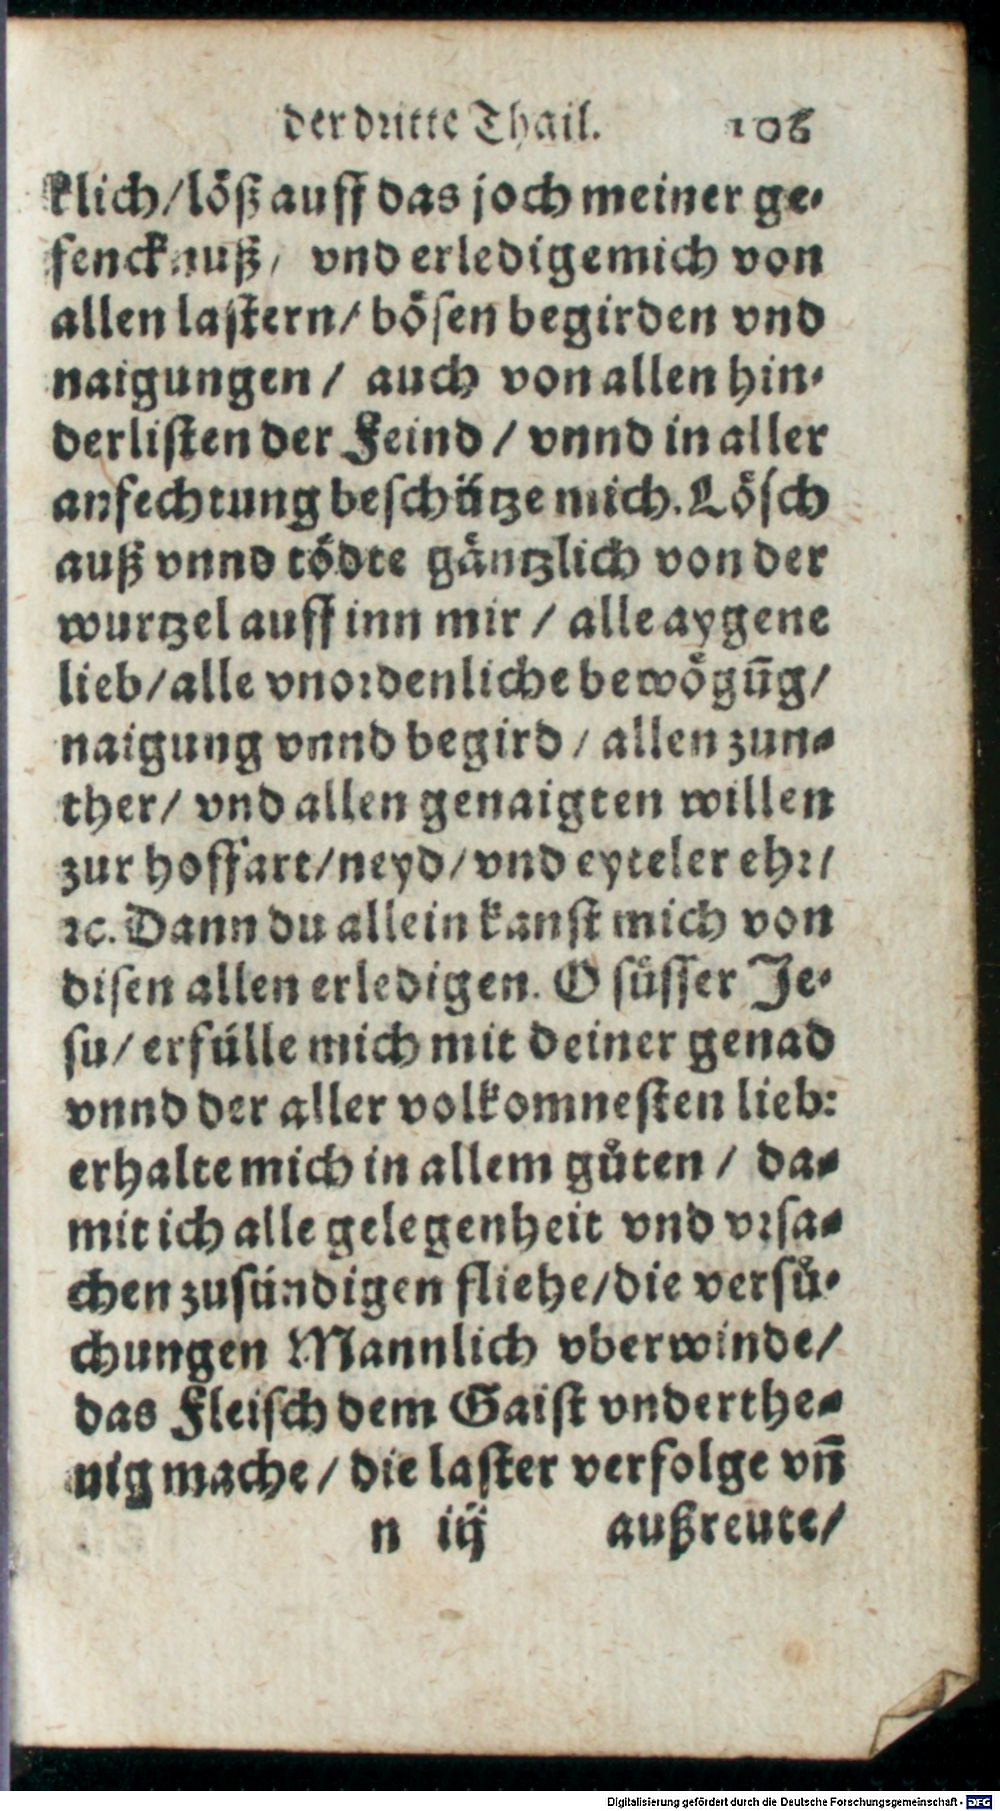 der dritte Thail. 106
klich/löß auff das joch meiner ge-
fencknuß/ vnd erledige mich von
allen lastern/ bösen begirden vnd
naigungen / auch von allen hin-
derlisten der Feind / vnnd in aller
anfechtung beschütze mich. Lösch
auß vnnd tödte gäntzlich von der
wurtzel auff inn mir / alle aygene
lieb/alle vnordenliche bewögūg/
naigung vnnd begird / allen zun-
ther/ vnd allen genaigten willen
zur hoffart/neyd/vnd eyteler ehr/
ꝛc. Dann du allein kanst mich von
disen allen erledigen. O süsser Je-
su/ erfülle mich mit deiner genad
vnnd der aller volkomnesten lieb:
erhalte mich in allem gůten / da-
mit ich alle gelegenheit vnd vrsa-
chen zusündigen fliehe/die versů-
chungen Mannlich vberwinde/
das Fleisch dem Gaist vnderthe-
nig mache / die laster verfolge vn̄
n iij außreute/
Digitalisierung gefördert durch die Deutsche Forschungsgemeinschaft - DFG